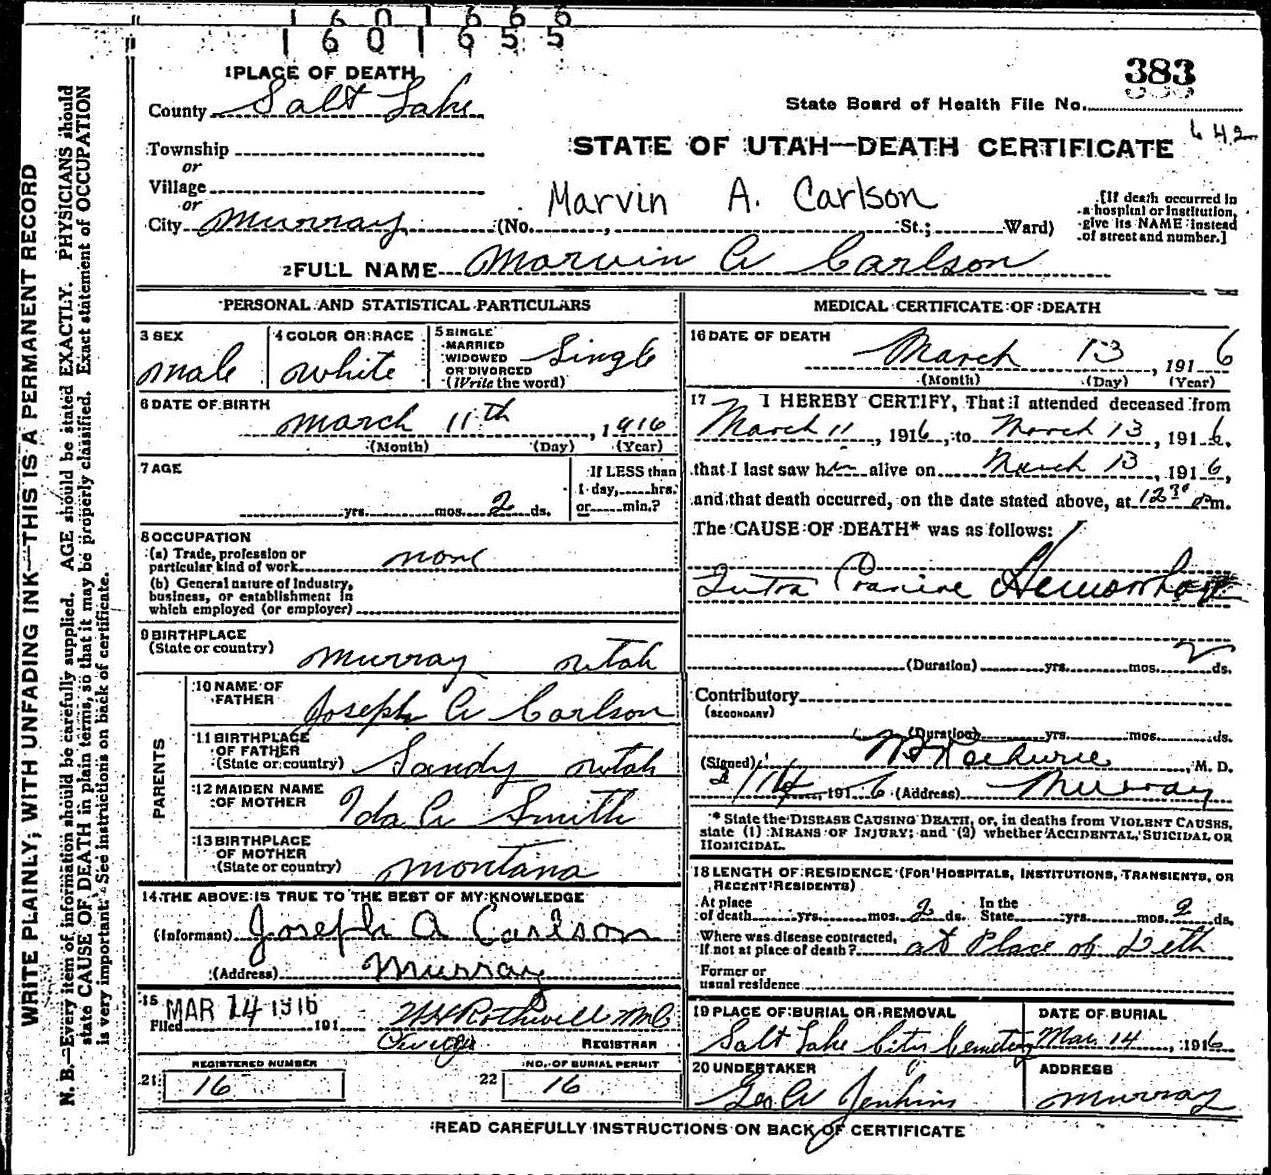 1601666
1601655
1 PLACE OF DEATH
383
County Salt Lake
State Board of Health File No.
642
Township
STATE OF UTAH—DEATH CERTIFICATE
or
Village
or
Marvin A. Carlson
[If death occurred in a hospital or institution, give its NAME instead of street and number.]
City Murray (No. , St.; Ward)
2 FULL NAME Marvin A Carlson
PERSONAL AND STATISTICAL PARTICULARS
3 SEX
male
4 COLOR OR RACE
white
5 SINGLE
MARRIED
WIDOWED
OR DIVORCED
(Write the word)
Single
6 DATE OF BIRTH
March 11th, 1916
(Month) (Day) (Year)
7 AGE
yrs. mos. 2 ds.
If LESS than
1 day, hrs.
or min.?
8 OCCUPATION
(a) Trade, profession or
particular kind of work none
(b) General nature of Industry,
business, or establishment in
which employed (or employer)
9 BIRTHPLACE
(State or country)
Murray Utah
PARENTS
10 NAME OF
FATHER
Joseph A Carlson
11 BIRTHPLACE
OF FATHER
(State or country)
Sandy Utah
12 MAIDEN NAME
OF MOTHER
Ida A Smith
13 BIRTHPLACE
OF MOTHER
(State or country)
Montana
14 THE ABOVE IS TRUE TO THE BEST OF MY KNOWLEDGE
(Informant) Joseph A Carlson
(Address) Murray
15 MAR 14 1916
Filed 191
H Rothwell MD
REGISTRAR
REGISTERED NUMBER
21 16
NO. OF BURIAL PERMIT
22 16
MEDICAL CERTIFICATE OF DEATH
16 DATE OF DEATH
March 13, 1916
(Month) (Day) (Year)
17 I HEREBY CERTIFY, That I attended deceased from
March 11, 1916, to March 13, 1916,
that I last saw him alive on March 13, 1916,
and that death occurred, on the date stated above, at 12 30 pm.
The CAUSE OF DEATH* was as follows:
Intra Cranine Hemorrhage
(Duration) yrs. mos. 2 ds.
Contributory
(SECONDARY)
(Duration) yrs. mos. ds.
(Signed) , M. D.
/14, 1916 (Address) Murray
* State the DISEASE CAUSING DEATH, or, in deaths from VIOLENT CAUSES,
state (1) MEANS OF INJURY; and (2) whether ACCIDENTAL, SUICIDAL OR
HOMICIDAL.
18 LENGTH OF RESIDENCE (FOR HOSPITALS, INSTITUTIONS, TRANSIENTS, OR
RECENT RESIDENTS)
At place In the
of death yrs. mos. 2 ds. State yrs. mos. 2 ds.
Where was disease contracted,
if not at place of death? at Place of Deth
Former or
usual residence
19 PLACE OF BURIAL OR REMOVAL
Salt Lake City Cemetery
DATE OF BURIAL
Mar 14, 1916
20 UNDERTAKER
Geo A Jenkins
ADDRESS
Murray
READ CAREFULLY INSTRUCTIONS ON BACK OF CERTIFICATE
WRITE PLAINLY, WITH UNFADING INK—THIS IS A PERMANENT RECORD
N. B.—Every item of information should be carefully supplied. AGE should be stated EXACTLY. PHYSICIANS should
state CAUSE OF DEATH in plain terms, so that it may be properly classified. Exact statement of OCCUPATION
is very important. See instructions on back of certificate.